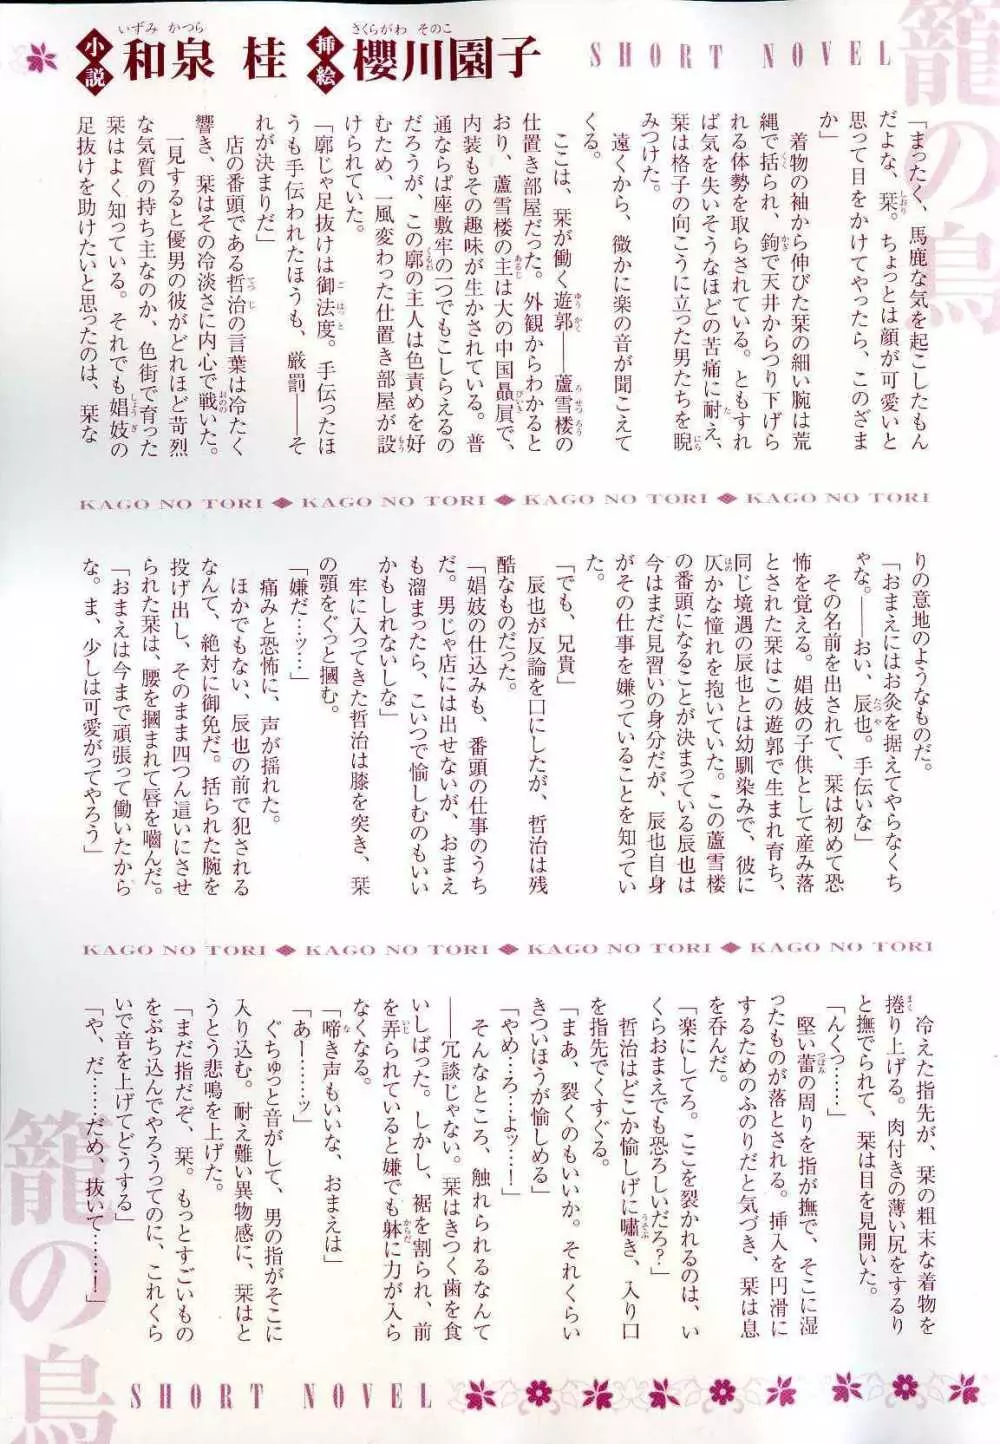 籠の鳥
SHORT NOVEL
小説 和泉 桂 挿絵 櫻川園子
いずみ かつら さくらがわ そのこ
「まったく、馬鹿な気を起こしたもん
だよな、栞。ちょっとは顔が可愛いと
思って目をかけてやったら、このざま
か」
着物の袖から伸びた栞の細い腕は荒
縄で括られ、鉤で天井からつり下げら
れる体勢を取らされている。ともすれ
ば気を失いそうなほどの苦痛に耐え、
栞は格子の向こうに立った男たちを睨
みつけた。
遠くから、微かに楽の音が聞こえて
くる。
ここは、栞が働く遊郭――蘆雪楼の
仕置き部屋だった。外観からわかると
おり、蘆雪楼の主は大の中国贔屓で、
内装もその趣味が生かされている。普
通ならば座敷牢の一つでもこしらえるの
だろうが、この廓の主人は色責めを好
むため、一風変わった仕置き部屋が設
けられていた。
「廓じゃ足抜けは御法度。手伝ったほ
うも手伝われたほうも、厳罰――そ
れが決まりだ」
店の番頭である哲治の言葉は冷たく
響き、栞はその冷淡さに内心で戦いた。
一見すると優男の彼がどれほど苛烈
な気質の持ち主なのか、色街で育った
栞はよく知っている。それでも娼妓の
足抜けを助けたいと思ったのは、栞な
KAGO NO TORI ◆ KAGO NO TORI ◆ KAGO NO TORI ◆ KAGO NO TORI
りの意地のようなものだ。
「おまえにはお灸を据えてやらなくち
ゃな。――おい、辰也。手伝いな」
その名前を出されて、栞は初めて恐
怖を覚える。娼妓の子供として産み落
とされた栞はこの遊郭で生まれ育ち、
同じ境遇の辰也とは幼馴染みで、彼に
仄かな憧れを抱いていた。この蘆雪楼
の番頭になることが決まっている辰也は
今はまだ見習いの身分だが、辰也自身
がその仕事を嫌っていることを知ってい
た。
「でも、兄貴」
辰也が反論を口にしたが、哲治は残
酷なものだった。
「娼妓の仕込みも、番頭の仕事のうち
だ。男じゃ店には出せないが、おまえ
も溜まったら、こいつで愉しむのもいい
かもしれないしな」
牢に入ってきた哲治は膝を突き、栞
の顎をぐっと摑む。
「嫌だ…ッ…」
痛みと恐怖に、声が揺れた。
ほかでもない、辰也の前で犯される
なんて、絶対に御免だ。括られた腕を
投げ出し、そのまま四つん這いにさせ
られた栞は、腰を摑まれて唇を嚙んだ。
「おまえは今まで頑張って働いたから
な。ま、少しは可愛がってやろう」
KAGO NO TORI ◆ KAGO NO TORI ◆ KAGO NO TORI ◆ KAGO NO TORI
冷えた指先が、栞の粗末な着物を
捲り上げる。肉付きの薄い尻をするり
と撫でられて、栞は目を見開いた。
「んくっ……」
堅い蕾の周りを指が撫で、そこに湿
ったものが落とされる。挿入を円滑に
するためのふのりだと気づき、栞は息
を呑んだ。
「楽にしてろ。ここを裂かれるのは、い
くらおまえでも恐ろしいだろ?」
哲治はどこか愉しげに嘯き、入り口
を指先でくすぐる。
「まあ、裂くのもいいか。それくらい
きついほうが愉しめる」
「やめ…ろ…よッ…!」
そんなところ、触れられるなんて
――冗談じゃない。栞はきつく歯を食
いしばった。しかし、裾を割られ、前
を弄られていると嫌でも躰に力が入ら
なくなる。
「啼き声もいいな、おまえは」
「あー……ッ」
ぐちゅっと音がして、男の指がそこに
入り込む。耐え難い異物感に、栞はと
うとう悲鳴を上げた。
「まだ指だぞ、栞。もっとすごいもの
をぶち込んでやろうってのに、これくら
いで音を上げてどうする」
「や、だ……だめ、抜いて……!」
籠の鳥
SHORT NOVEL